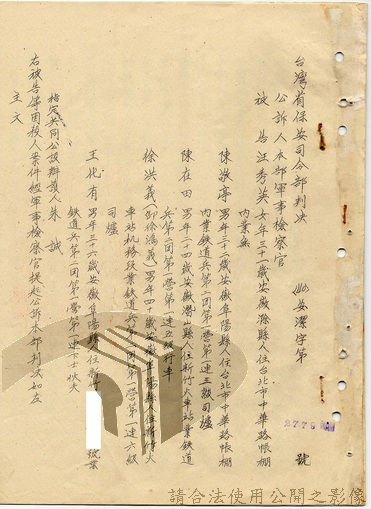 台灣省保安司令部判決
安潔字第
2779
號
公訴人本部軍事檢察官
被告汪秀英女年三十一歲安徽滁縣人住台北市中華路帳棚
內業無
陳敬亭男年三十二歲安徽阜陽縣人住台北市中華路帳棚
內業鉄道兵第二团第一營第一連三級司爐
陳在田男年二四歲安徽潛山縣人住新竹火車站業鉄道
兵第二团第一營第一連五級行車
徐洪義(即徐鴻義)男年四十歲安徽阜陽縣人住新竹火
車站机務段業鉄道兵第二团第一營第一連六級
司爐
王化有男年三十六歲安徽阜陽縣人住新竹
號業
鉄道兵第二团第一營第一連下士伙夫
指定共同公設辯護人朱誠
右被告等因殺人案件經軍事檢察官提起公訴本部判決如左
主文
請合法使用公開之影像